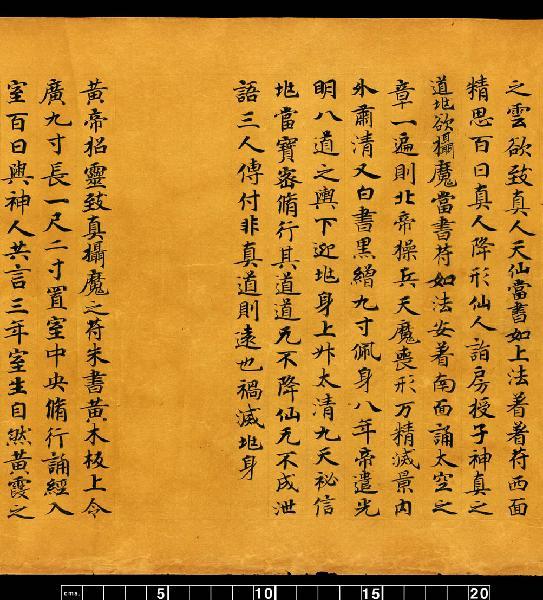 之雲欲致真人天仙當書如上法著著苻西面
精思百日真人降形仙人詣房授子神真之
道兆欲攝魔當書苻如法安著南面誦太空之
章一遍則北帝操兵天魔喪形万精滅景內
外肅清又白書黑繒九寸佩身八年帝遣光
明八道之輿下迎兆身上升太清九天祕信
兆當寶密脩行其道道无不降仙无不成泄
語三人傳付非真道則遠也禍滅兆身
黃帝招靈致真攝魔之苻朱書黃木板上令
廣九寸長一尺二寸置室中央脩行誦經入
室百日與神人共言三年室生自然黃霞之
cms. 5 10 15 20